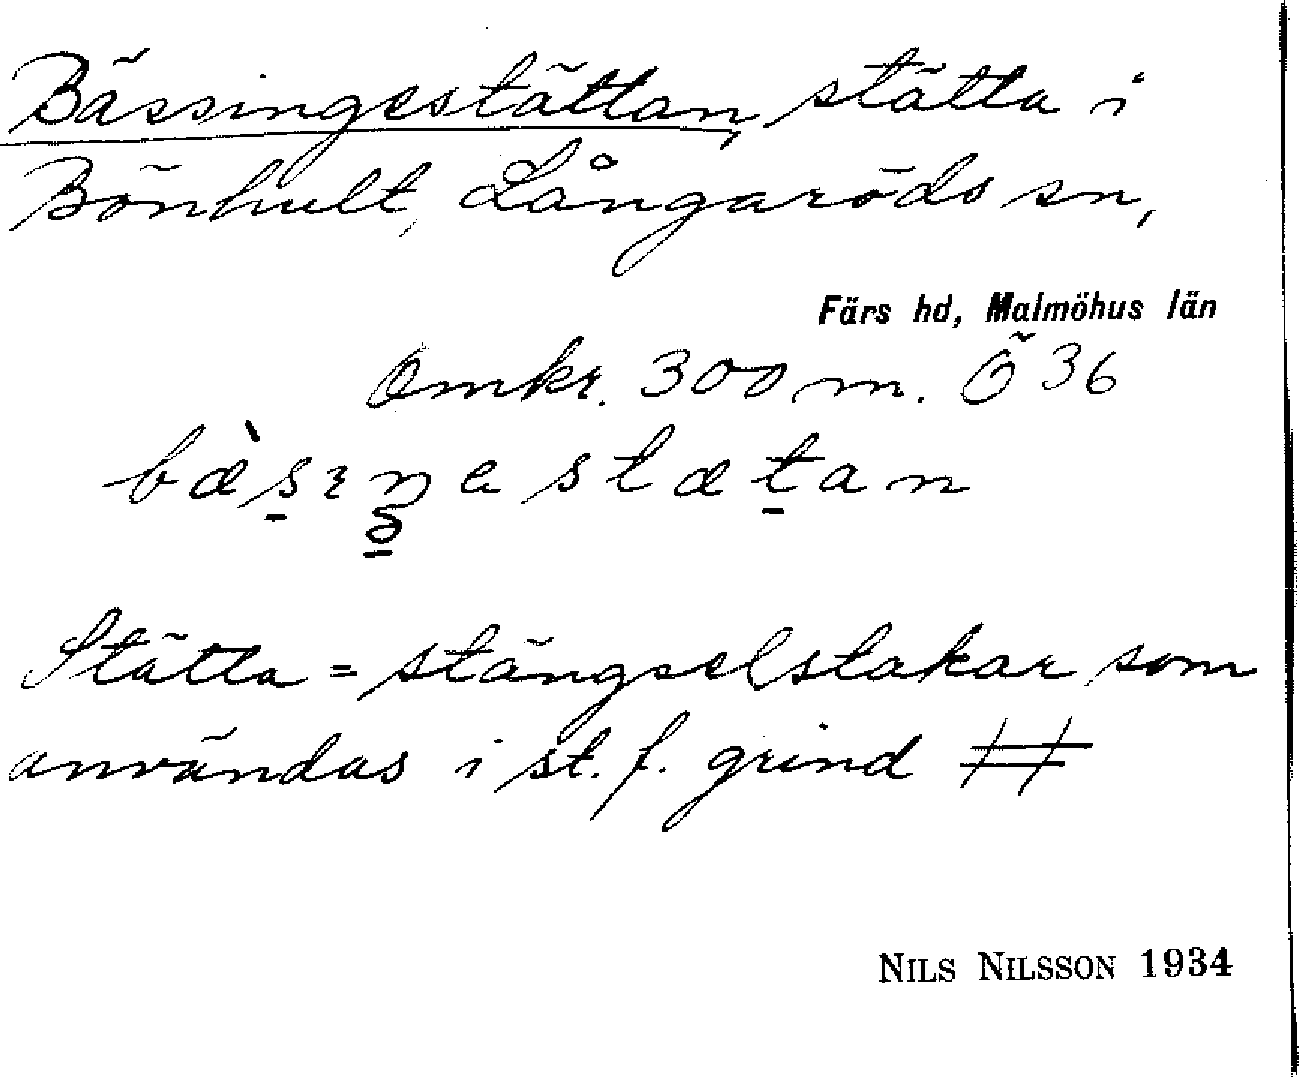 Bässingestättan, stätta i
Bönhult, Långaröds sn,
Färs hd, Malmöhus län
Omkr. 300 m. Ö 36
Stätta = stängselstakar som
användas i st. f. grind
NILS NILSSON 1934